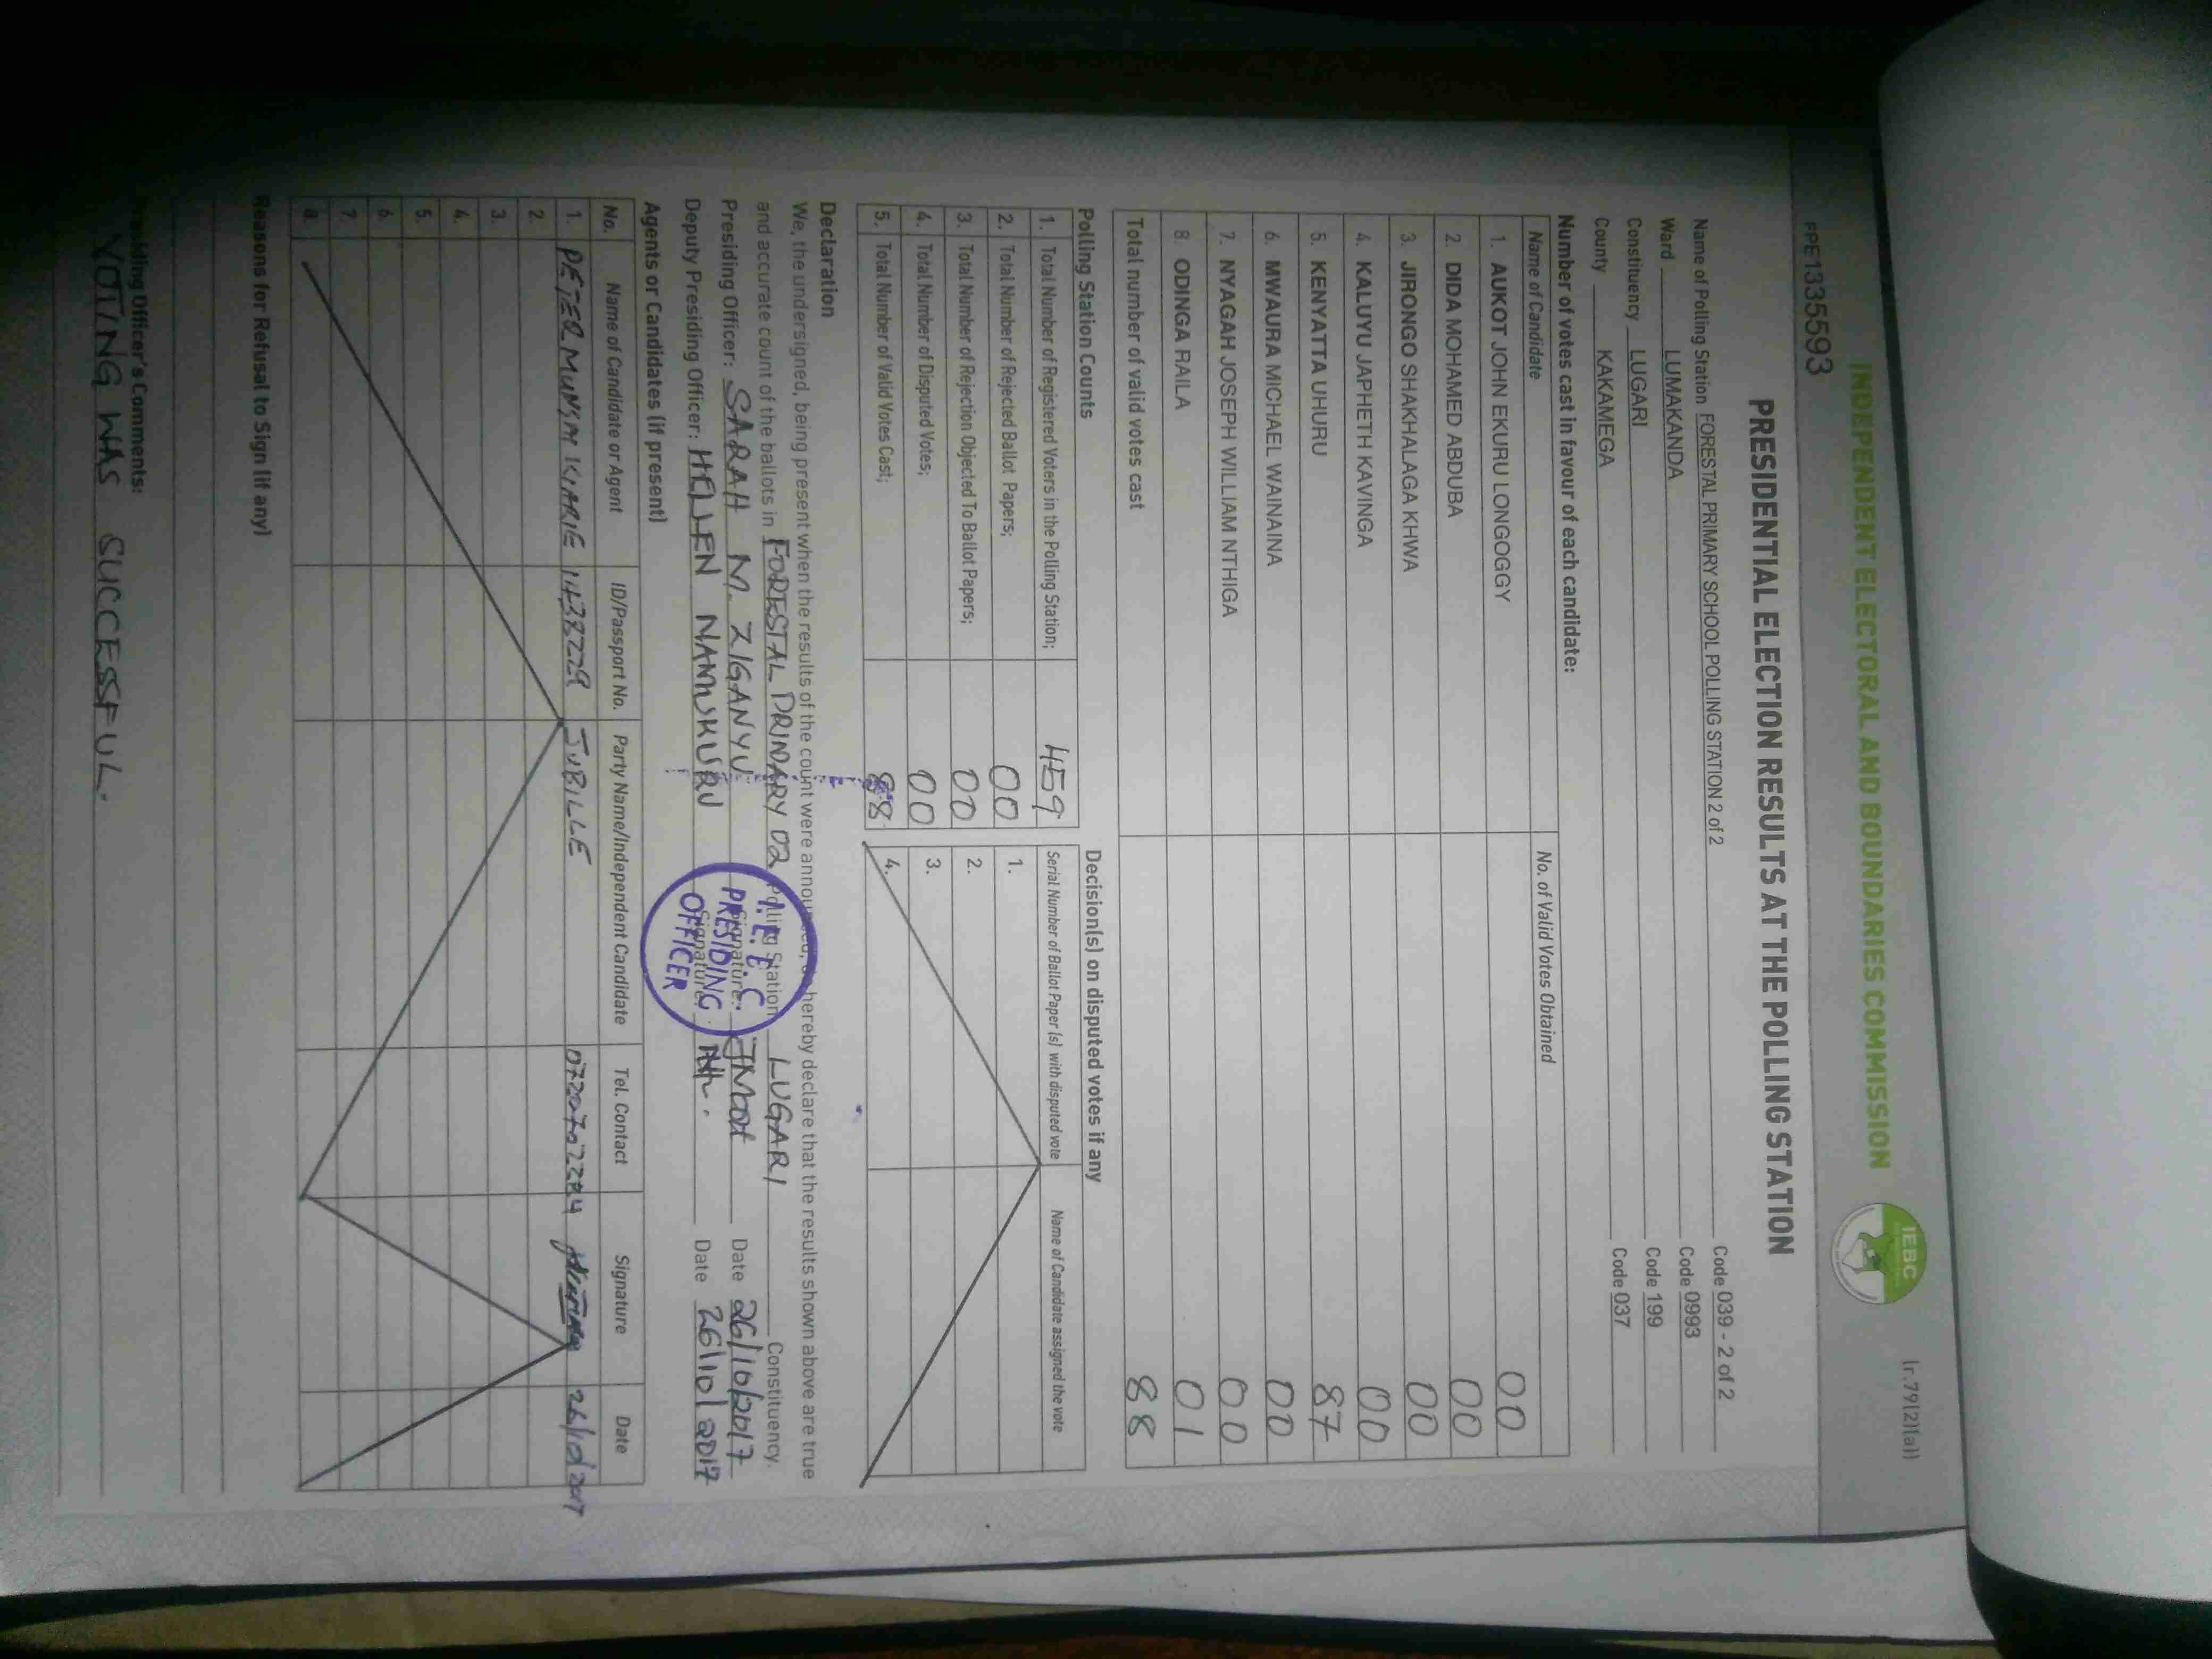 Ir.79(2)(a))
INDEPENDENT ELECTORAL AND BOUNDARIES COMMISSION
IEBC
FPE1335593
PRESIDENTIAL ELECTION RESULTS AT THE POLLING STATION
Name of Polling Station FORESTAL PRIMARY SCHOOL POLLING STATION 2 of 2 Code 039 - 2 of 2
Ward LUMAKANDA Code 0993
Constituency LUGARI Code 199
County KAKAMEGA Code 037
Number of votes cast in favour of each candidate:
Name of Candidate No. of Valid Votes Obtained
1. AUKOT JOHN EKURU LONGOGGY 00
2. DIDA MOHAMED ABDUBA 00
3. JIRONGO SHAKHALAGA KHWA 00
4. KALUYU JAPHETH KAVINGA 00
5. KENYATTA UHURU 87
6. MWAURA MICHAEL WAINAINA 00
7. NYAGAH JOSEPH WILLIAM NTHIGA 00
8. ODINGA RAILA 01
Total number of valid votes cast 88
Polling Station Counts
1. Total Number of Registered Voters in the Polling Station; 459
2. Total Number of Rejected Ballot Papers; 00
3. Total Number of Rejection Objected To Ballot Papers; 00
4. Total Number of Disputed Votes; 00
5. Total Number of Valid Votes Cast; 88
Decision(s) on disputed votes if any
Serial Number of Ballot Paper (s) with disputed vote Name of Candidate assigned the vote
1.
2.
3.
4.
Declaration
We, the undersigned, being present when the results of the count were announced, do hereby declare that the results shown above are true
and accurate count of the ballots in FORESTAL PRIMARY 02 Polling Station LUGARI Constituency.
Presiding Officer: SARAH M. ZIGANYU Signature: Date 26/10/2017
Deputy Presiding Officer: HELLEN NAMUKURU Signature: Date 26/10/2017
I.E.B.C
PRESIDING
OFFICER
Agents or Candidates (if present)
No. Name of Candidate or Agent ID/Passport No. Party Name/Independent Candidate Tel. Contact Signature Date
1. PETER JUBILLE 26/10/2017
2.
3.
4.
5.
6.
7.
8.
Reasons for Refusal to Sign (if any)
Presiding Officer's Comments:
VOTING WAS SUCCESSFUL.